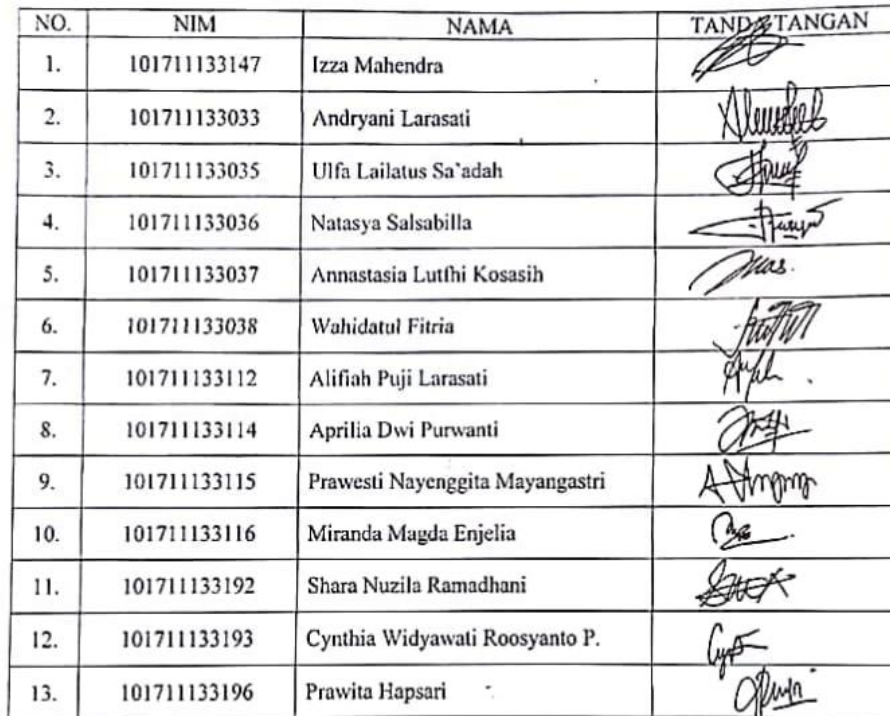 NO. NIM NAMA TANDA TANGAN
1. 101711133147 Izza Mahendra
2. 101711133033 Andryani Larasati
3. 101711133035 Ulfa Lailatus Sa`adah
4. 101711133036 Natasya Salsabilla
5. 101711133037 Annastasia Lutfhi Kosasih
6. 101711133038 Wahidatul Fitria
7. 101711133112 Alifiah Puji Larasati
8. 101711133114 Aprilia Dwi Purwanti
9. 101711133115 Prawesti Nayenggita Mayangastri
10. 101711133116 Miranda Magda Enjelia
11. 101711133192 Shara Nuzila Ramadhani
12. 101711133193 Cynthia Widyawati Roosyanto P.
13. 101711133196 Prawita Hapsari